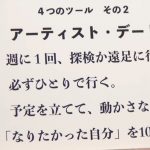 ４つのツール　その２
アーティスト・デー
週に１回、探検か遠足に行
必ずひとりで行く。
予定を立てて、動かさな
「なりたかった自分」を10